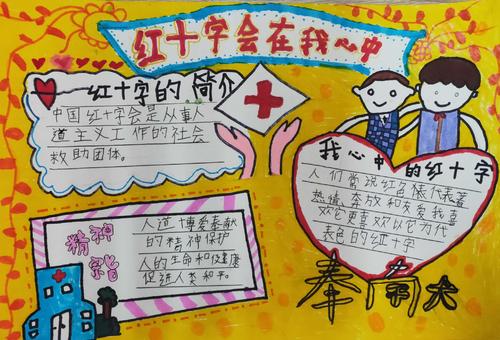 红十字会在我心中
红十字的 简介
中国红十字会是从事人
道主义工作的社会
救助团体。
我心中的红十字
人们常说红色代表著
热情、奔放和友爱我喜
欢它更喜欢以它为代
表色的红十字
精神
人道博爱奉献
的精神保护
人的生命和健康
促进人类和平。